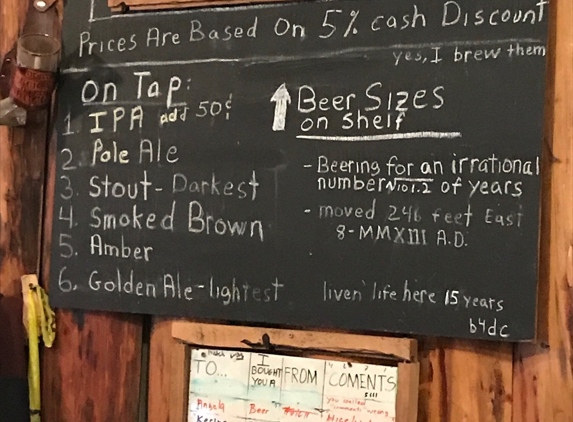 Prices Are Based On 5% cash Discount
yes, I brew them
On Tap:
1. IPA add 50¢
2. Pale Ale
3. Stout - Darkest
4. Smoked Brown
5. Amber
6. Golden Ale - lightest
Beer Sizes
on Shelf
- Beering for an irrational
number √101.2 of years
- moved 246 feet East
8-MMXIII A.D.
liven' life here 15 years
b4dc
TO... I BOUGHT YOU A FROM COMENTS
Angela Beer